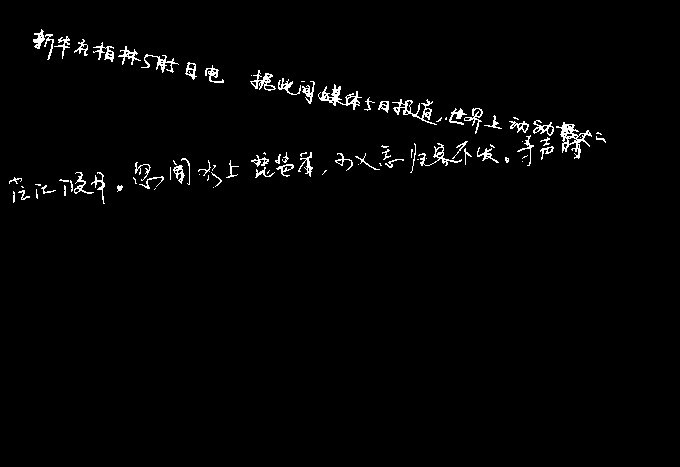 新华社柏林5月5日电 据此间媒体5日报道,世界上
茫江浸月。忽闻水上琵琶声,主人忘归客不发。寻声暗